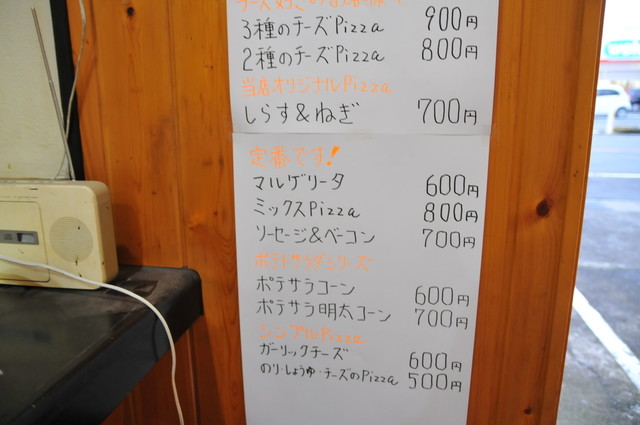 3種のチーズPizza 900円
2種のチーズPizza 800円
当店オリジナルPizza
しらす&ねぎ 700円
定番です!
マルゲリータ 600円
ミックスPizza 800円
ソーセージ&ベーコン 700円
ポテトサラダシリーズ
ポテサラコーン 600円
ポテサラ明太コーン 700円
シンプルPizza
ガーリックチーズ 600円
のり・しょうゆ・チーズのPizza 500円